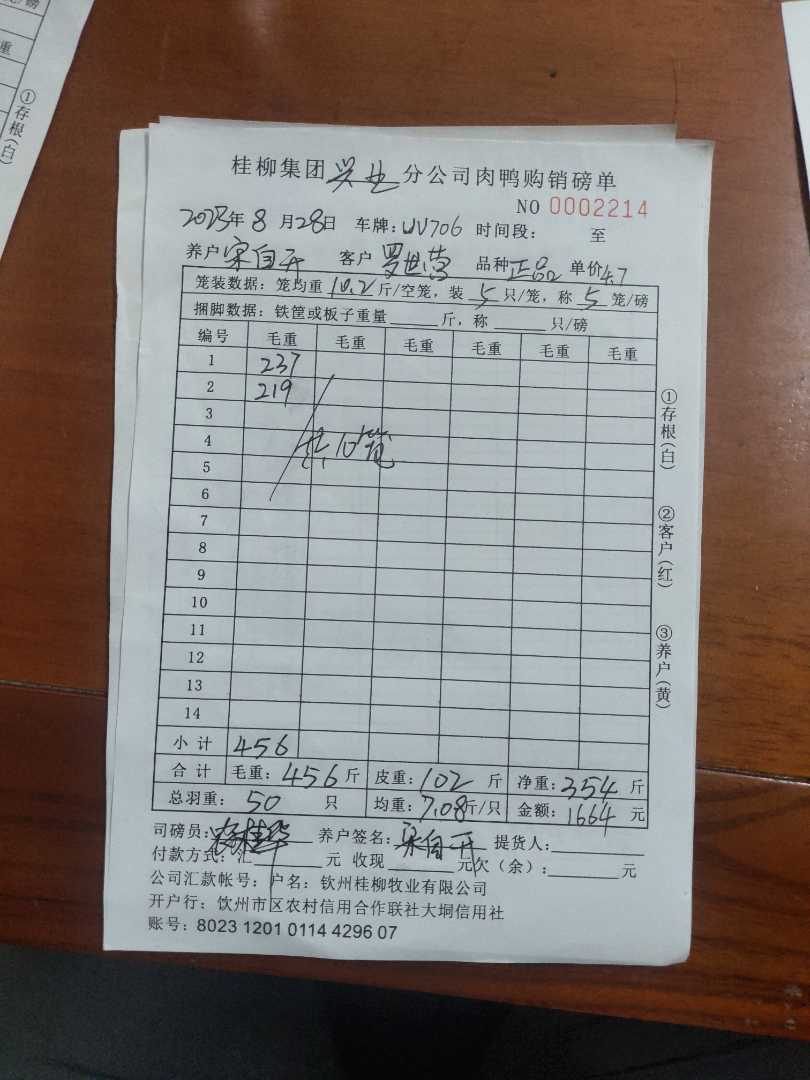 桂柳集团兴业分公司肉鸭购销磅单
NO 0002214
2023年8月28日 车牌：UV706 时间段： 至
养户 宋自开 客户 罗世营 品种 正品 单价4.7
笼装数据：笼均重 10.2 斤/空笼，装 5 只/笼，称 5 笼/磅
捆脚数据：铁筐或板子重量 斤，称 只/磅
编号 毛重 毛重 毛重 毛重 毛重 毛重
1 237
2 219
3
4 共10笼
5
6
7
8
9
10
11
12
13
14
小计 456
合计 毛重：456斤 皮重：102斤 净重：354斤
总羽重：50 只 均重：7.08斤/只 金额：1664元
司磅员： 养户签名：宋自开 提货人：
付款方式：汇 元 收现 元欠（余）： 元
公司汇款帐号：户名：钦州桂柳牧业有限公司
开户行：饮州市区农村信用合作联社大垌信用社
账号：8023 1201 0114 4296 07
①存根（白）
②客户（红）
③养户（黄）
①存根（白）